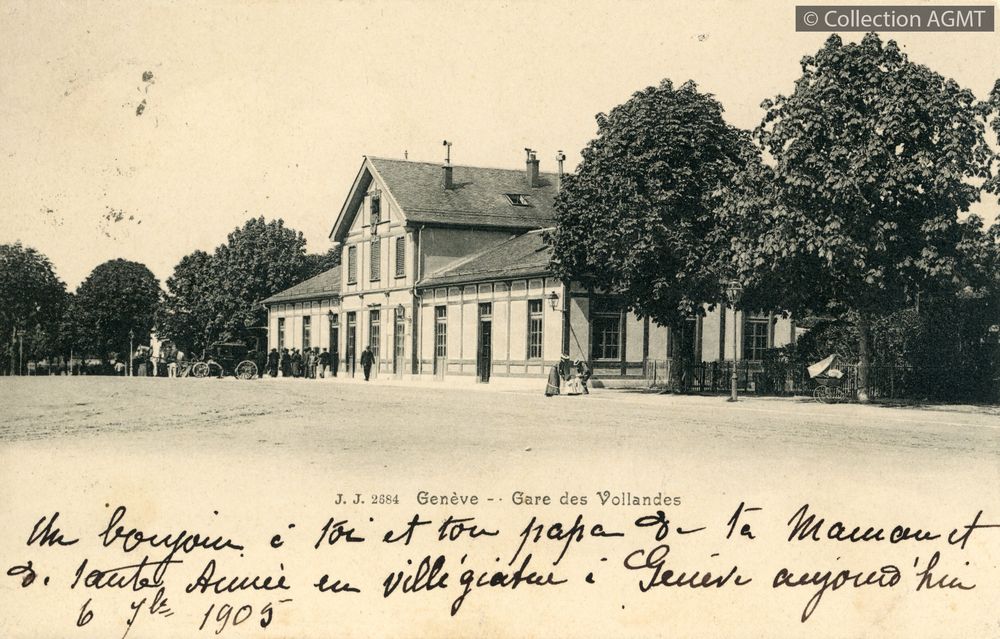 © Collection AGMT
J. J. 2684 Genève -· Gare des Vollandes
Un bonjour à toi et ton papa de ta Maman et
de tante Année en villégiature à Genève aujourd'hui
6 7bre 1905